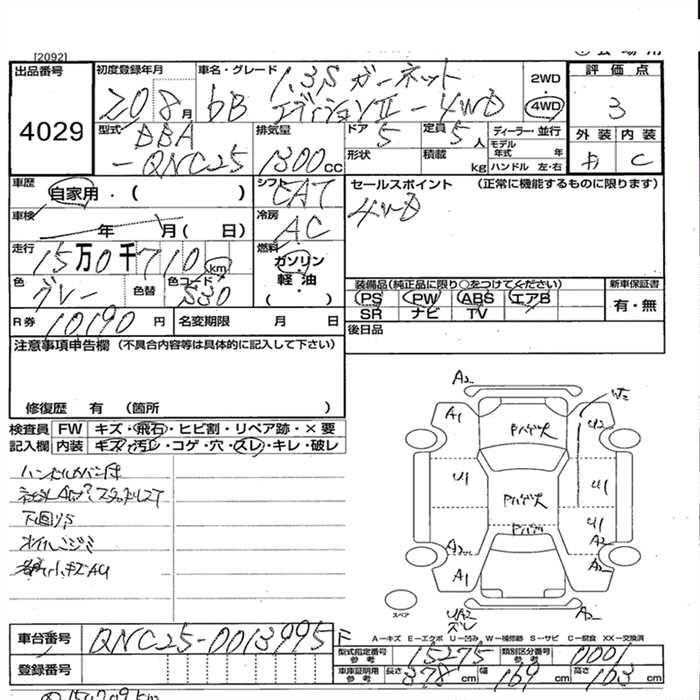 [2092]
出品番号
4029
初度登録年月
20 8月
車名・グレード
bB
1.3S ガーネット
エディションII-4WD
2WD
4WD
型式
DBA
-QNC25
排気量
1300cc
ドア
5
定員
5人
形状
積載
kg
ディーラー・並行
モデル年式 年
ハンドル 左・右
評価点
3
外装
内装
C
車歴
自家用・( )
シフト
CAT
車検
年 月( 日)
冷房
AC
走行
15万0千710km
燃料
ガソリン
軽油
・( )
色
グレー
色替
色コード
S30
R券
10190円
名変期限 月 日
セールスポイント (正常に機能するものに限ります)
4WD
装備品(純正品に限り○をつけてください)
PS PW ABS エアB
SR ナビ TV
新車保証書
有・無
後日品
注意事項申告欄(不具合内容等は具体的に記入して下さい)
修復歴 有 (箇所 )
検査員
記入欄
FW キズ・飛石・ヒビ割・リペア跡・×要
内装 キズ・汚レ・コゲ・穴・スレ・キレ・破レ
下回りS
A2
A1
U1
U1
U1
A2
A2
A1
A2
UA2
ズレ
A2
スペア
A-キズ E-エクボ U-凹み W-補修跡 S-サビ C-腐食 XX-交換済
車台番号
QNC25-0013995
登録番号
型式指定番号
参考
15275
類別区分番号
参考
0001
車庫証明用
参考
長さ 378cm
幅 169cm
高さ 163cm